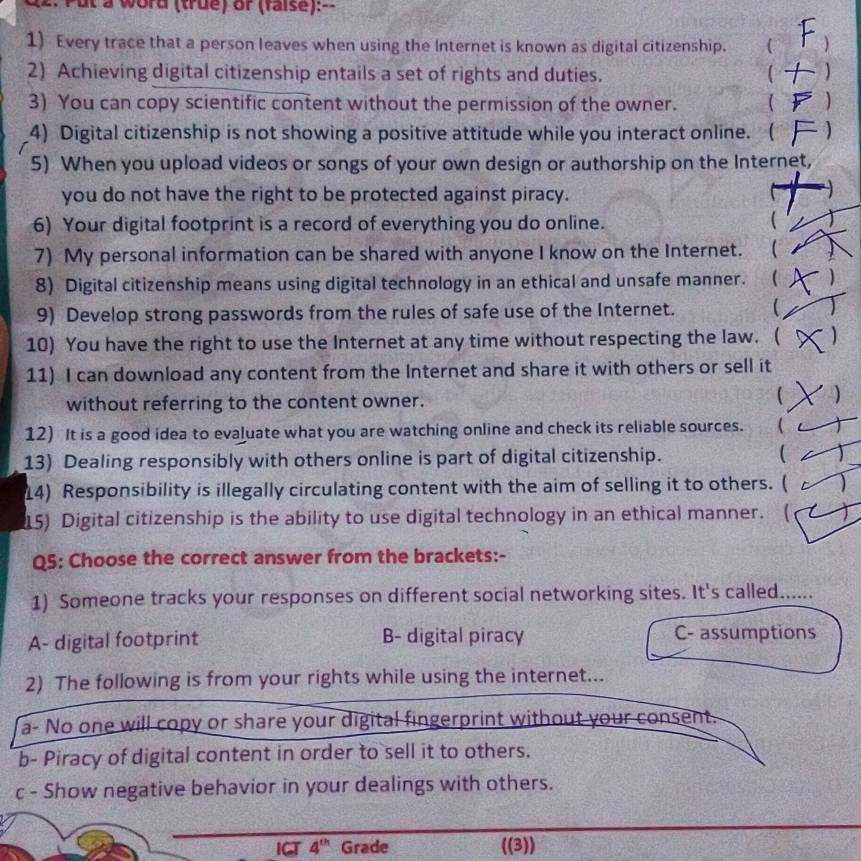 Q2: Put a word (true) or (false):--
1) Every trace that a person leaves when using the Internet is known as digital citizenship. ( F )
2) Achieving digital citizenship entails a set of rights and duties. ( + )
3) You can copy scientific content without the permission of the owner. ( F )
4) Digital citizenship is not showing a positive attitude while you interact online. ( F )
5) When you upload videos or songs of your own design or authorship on the Internet,
you do not have the right to be protected against piracy. ( + )
6) Your digital footprint is a record of everything you do online. ( )
7) My personal information can be shared with anyone I know on the Internet. (
8) Digital citizenship means using digital technology in an ethical and unsafe manner. ( X )
9) Develop strong passwords from the rules of safe use of the Internet. (
10) You have the right to use the Internet at any time without respecting the law. ( X )
11) I can download any content from the Internet and share it with others or sell it
without referring to the content owner. ( X )
12) It is a good idea to evaluate what you are watching online and check its reliable sources. (
13) Dealing responsibly with others online is part of digital citizenship. (
14) Responsibility is illegally circulating content with the aim of selling it to others. (
15) Digital citizenship is the ability to use digital technology in an ethical manner. (
Q5: Choose the correct answer from the brackets:-
1) Someone tracks your responses on different social networking sites. It's called......
A- digital footprint B- digital piracy C- assumptions
2) The following is from your rights while using the internet...
a- No one will copy or share your digital fingerprint without your consent.
b- Piracy of digital content in order to sell it to others.
c - Show negative behavior in your dealings with others.
ICT 4th Grade ((3))